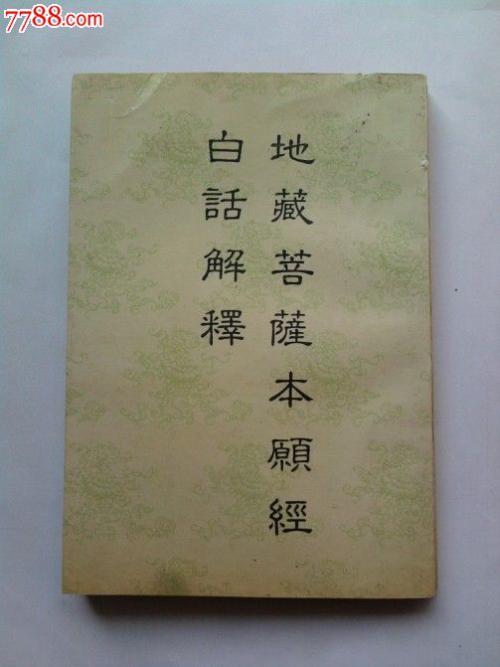 7788.com
地藏菩薩本願經
白話解釋